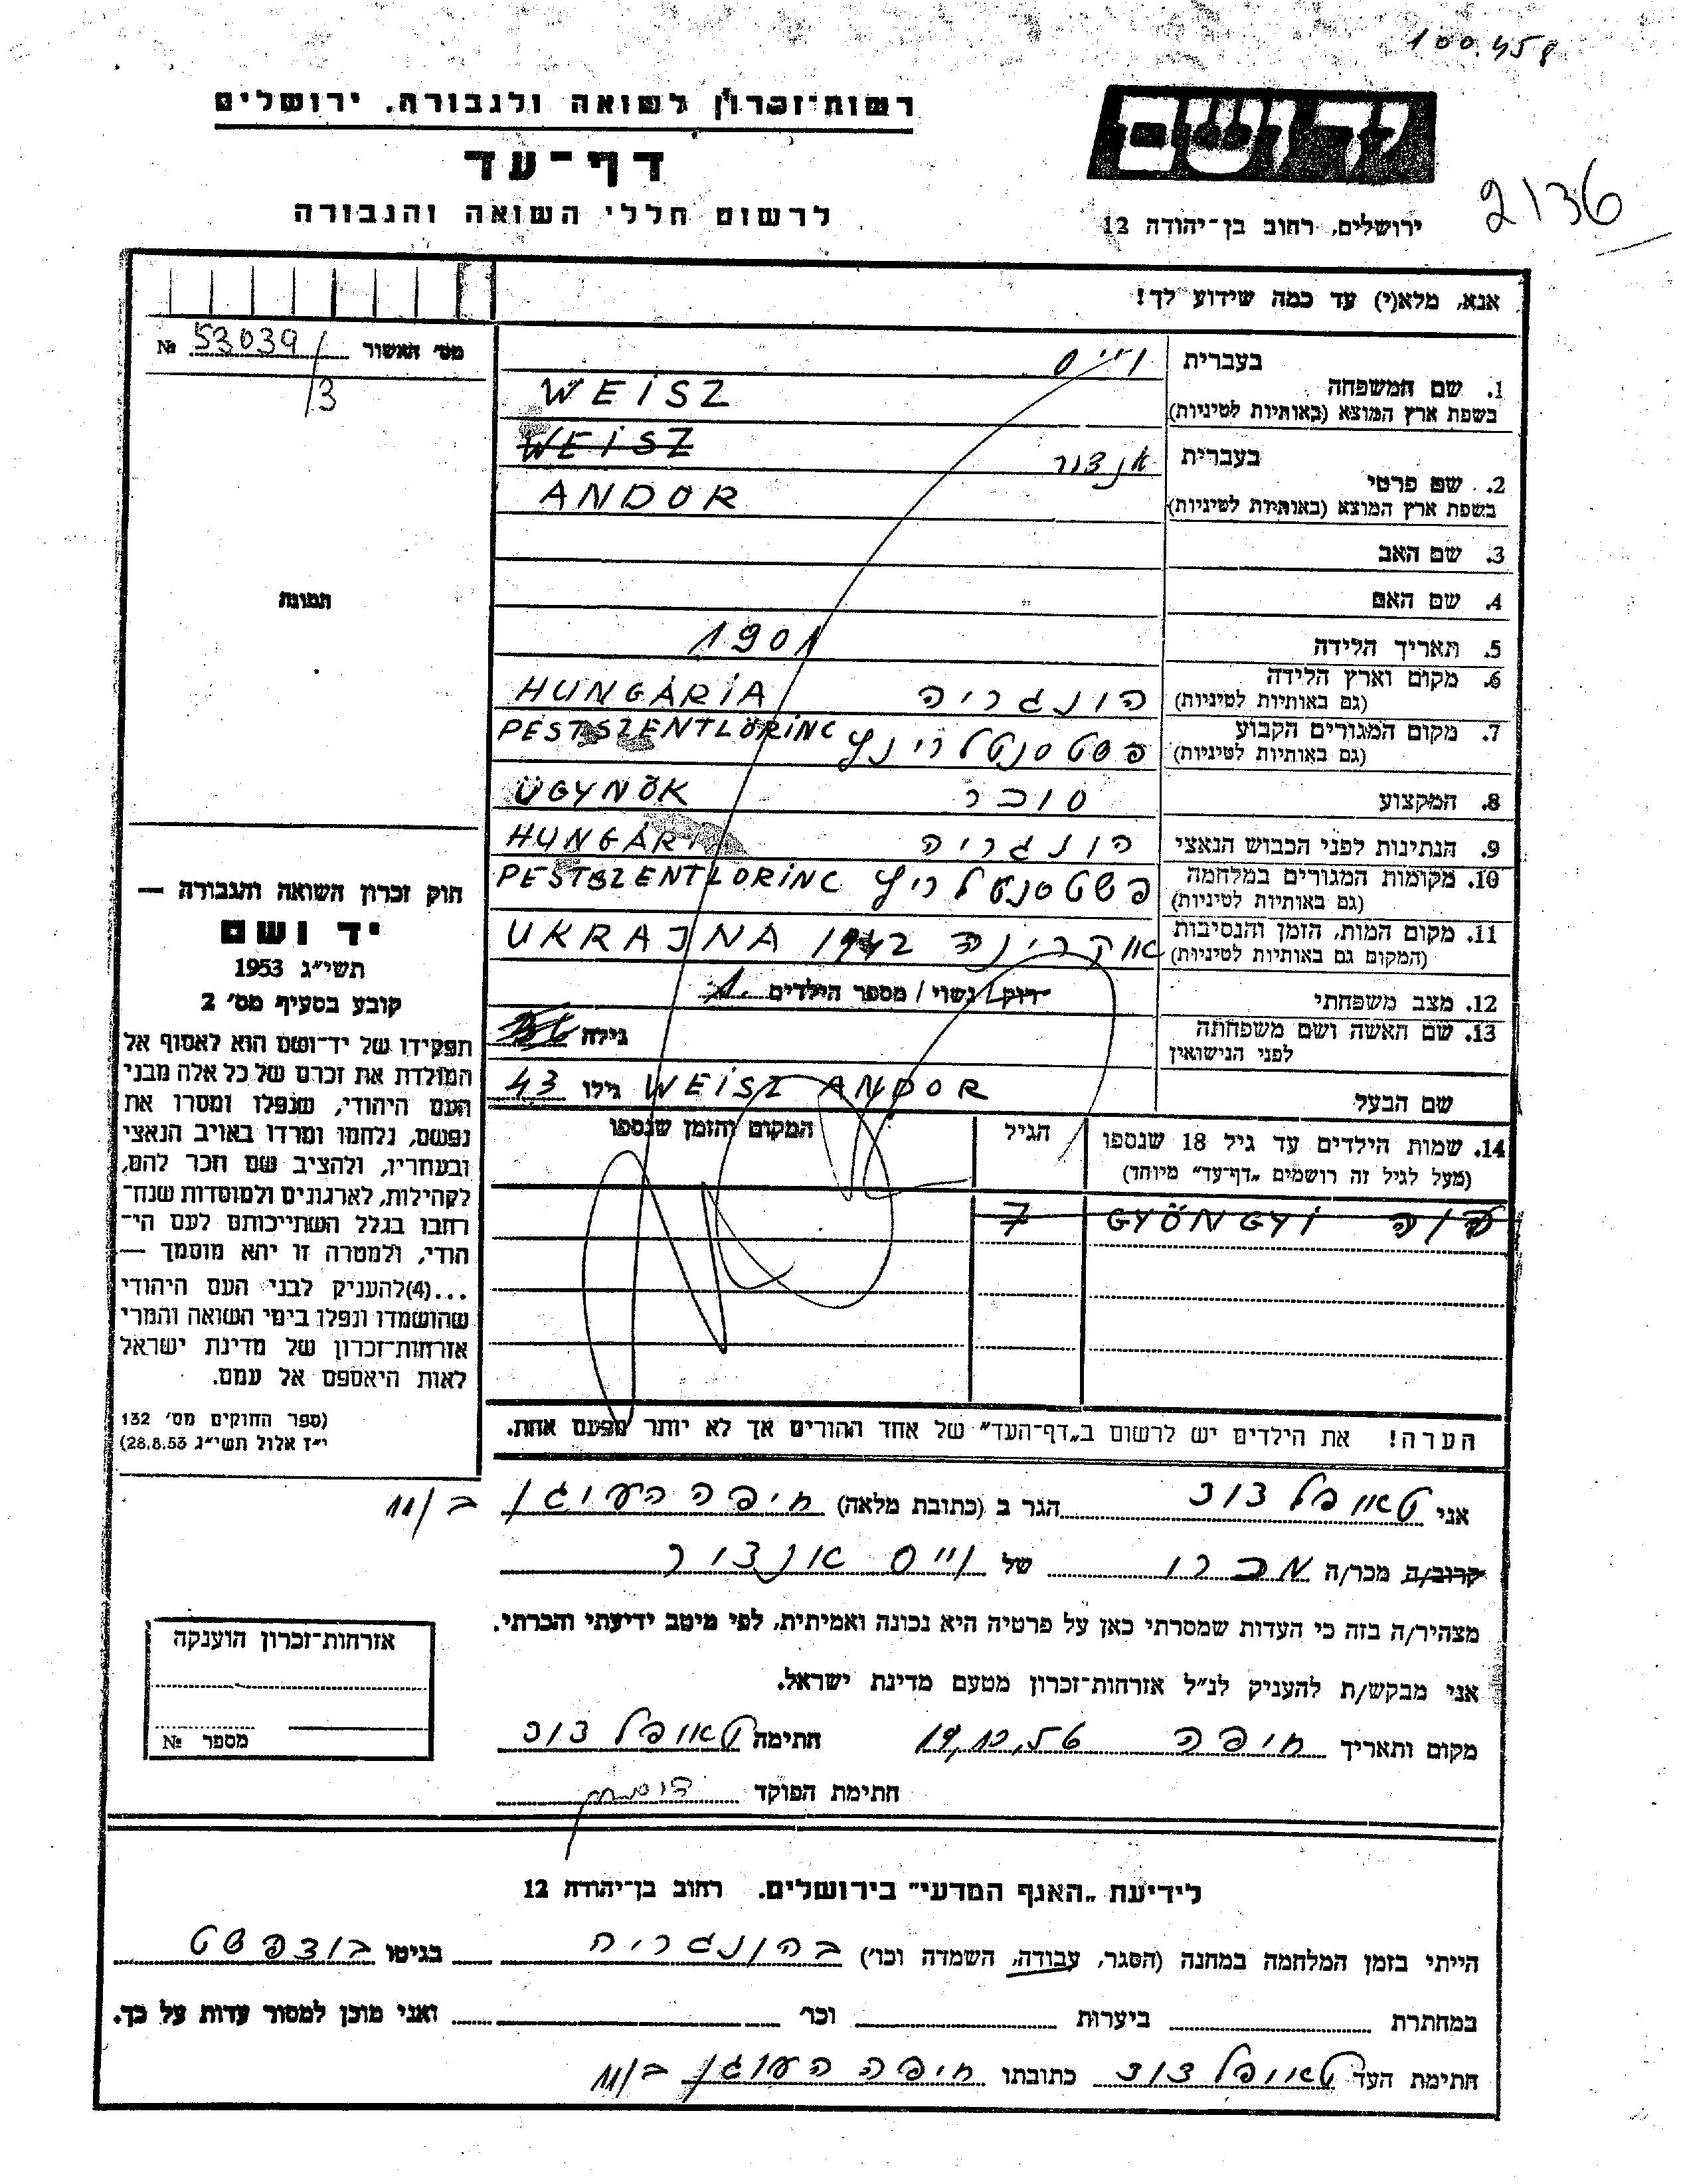 100.458
רשות־זכרון לשואה ולגבורה. ירושלים
יד ושם
דף־עד
2136
לרשום חללי השואה והגבורה
ירושלים, רחוב בן־יהודה 12
אנא, מלא(י) עד כמה שידוע לך!
מס׳ האשור № 53039/3
1. שם המשפחה
בעברית וייס
בשפת ארץ המוצא (באותיות לטיניות) WEISZ
WEISZ
2. שם פרטי
בעברית אנדור
בשפת ארץ המוצא (באותיות לטיניות) ANDOR
3. שם האב
4. שם האם
תמונה
5. תאריך הלידה 1901
6. מקום וארץ הלידה הונגריה HUNGÁRIA
(גם באותיות לטיניות)
7. מקום המגורים הקבוע פשטסנטלרינץ PESTSZENTLÖRINC
(גם באותיות לטיניות)
8. המקצוע סוכר ÜGYNÖK
9. הנתינות לפני הכבוש הנאצי הונגריה HUNGÁRI
10. מקומות המגורים במלחמה פשטסנטלריץ PESTSZENTLORINC
(גם באותיות לטיניות)
11. מקום המות, הזמן והנסיבות אוקרינה 1942 UKRAJNA
(המקום גם באותיות לטיניות)
12. מצב משפחתי רוק/נשוי/ מספר הילדים 1.
13. שם האשה ושם משפחתה גילה
לפני הנישואין
שם הבעל WEISZ ANDOR גילו 43
14. שמות הילדים עד גיל 18 שנספו הגיל המקום והזמן שנספו
(מעל לגיל זה רושמים "דף־עד" מיוחד)
GYÖNGYI 7
חוק זכרון השואה והגבורה —
יד ושם
תשי״ג 1953
קובע בסעיף מס׳ 2
תפקידו של יד־ושם הוא לאסוף אל
המולדת את זכרם של כל אלה מבני
העם היהודי, שנפלו ומסרו את
נפשם, נלחמו ומרדו באויב הנאצי
ובעוזריו, ולהציב שם וזכר להם,
לקהילות, לארגונים ולמוסדות שנח־
רבו בגלל השתייכותם לעם הי־
הודי, ולמטרה זו יהא מוסמך —
...(4)להעניק לבני העם היהודי
שהושמדו ונפלו בימי השואה והמרי
אזרחות־זכרון של מדינת ישראל
לאות היאספם אל עמם.
(ספר החוקים מס׳ 132
י״ז אלול תשי״ג 28.8.53)
הערה! את הילדים יש לרשום ב„דף־העד" של אחד ההורים אך לא יותר מפעם אחת.
אני טאופל דוד הגר ב (כתובת מלאה) חיפה העוגן ב/11
קרוב/ה מכר/ה מכרו של וייס אנדור
מצהיר/ה בזה כי העדות שמסרתי כאן על פרטיה היא נכונה ואמיתית, לפי מיטב ידיעתי והכרתי.
אני מבקש/ת להעניק לנ״ל אזרחות־זכרון מטעם מדינת ישראל.
מקום ותאריך חיפה 19,10,56 חתימה טאופל דוד
חתימת הפוקד
אזרחות־זכרון הוענקה
מספר №
לידיעת „האגף המדעי" בירושלים. רחוב בן־יהודה 12
הייתי בזמן המלחמה במחנה (הסגר, עבודה, השמדה וכו׳) בהונגריה בגיטו בודפשט
במחתרת ביערות וכו׳ ואני מוכן למסור עדות על כך.
חתימת העד טאופל דוד כתובתו חיפה העוגן ב/11